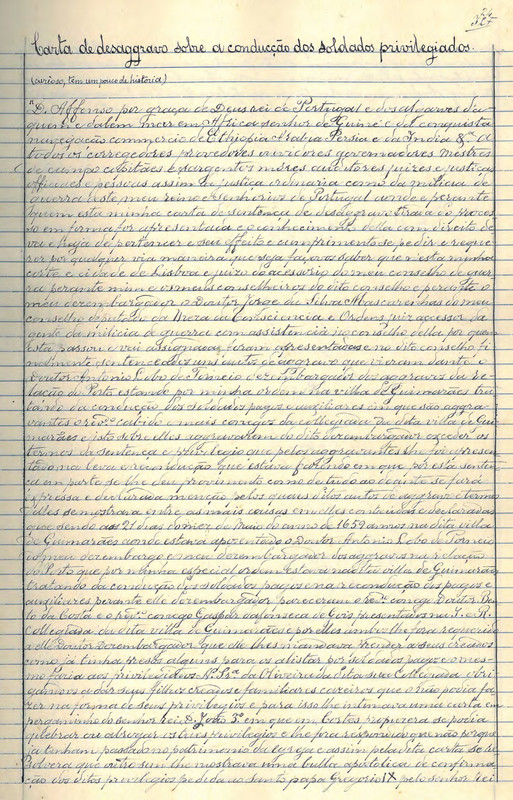 Carta de desaggravo sobre a conducção dos soldados privilegiados.
(curioso, tem um pouco de historia)
"D. Affonso por graça de Deus rei de Portugal e dos algarves da-
quem e dalem mar em Africa senhor de Guiné e da conquista
navegação commercio de Ethiopia Arabia Persia e da India &ª a
todos os corregedores provedores ouvidores governadores mestres
de campo capitães e sargentos móres auditores juizes e justiças
officiaes e pessoas assim de justiça ordinaria como da milicia de
guerra deste meu reino e senhorios de Portugal aonde e perante
quem esta minha carta de sentença de desaggravo tirada do proces-
so em forma for apresentada e o conhecimento della com direito de-
va e haja de pertencer e seu effeito e cumprimento se pedir e reque-
rer por qualquer via maneira que seja faço vos saber que n'esta minha
corte e cidade de Lisboa e juizo da acessoria do meu conselho de guer-
ra perante mim e os meus conselheiros do dito conselho e perante o
meu desembargador o Doutor Jorge da Silva Mascarenhas do meu
conselho deputado da Meza da Consciencia e Ordens juiz acessor da
gente da milicia de guerra com assistencia no conselho della por quem
esta passou e vai assignada foram apresentados e no dito conselho fi-
nalmente sentenceados uns autos de aggravo que vieram dante o
Doutor Antonio Lobo de Torneio desembargador dos aggravos da re-
lação do Porto estando por minha ordem na villa de Guimarães tra-
tando da condução dos soldados pagos e auxiliares em que são aggra-
vantes o rev.º cabido e mais conegos da collegiada da dita villa de Gui-
marães e isto sobre elles aggravarem do dito desembargador exceder os
termos da sentença e privilegio que pelos aggravantes lhe foi apresen-
tado na leva e reconducção que estava fazendo em que por esta senten-
ça em parte se lhe deu provimento como de tudo ao deante se fará
expressa e declarada menção pelos quaes ditos autos de aggravo e termos
delles se mostrava entre as mais cousas em elles conteudas e declaradas
que sendo aos 21 dias do mez de Maio do anno de 1659 annos na dita villa
de Guimarães aonde estava apozentado o Doutor Antonio Lobo de Torneio
do meu dezembargo e meu dezembargador dos aggravos na relação
do Porto que por minha especial ordem estava na dita villa de Guimarães
tratando da condução dos soldados pagos e na reconducção dos pagos e
auxiliares perante elle desembargador pareceram o rev.º conego Doutor Ben-
to da Costa e o rev.º conego Gaspar da Fonseca de Gois presentados na I. e R.
Collegiada da dita villa de Guimarães e por elles ambos lhe fora requerido
a elle Doutor Dezembargador que elle lhes mandava prender a seus creados
como já tinha presos alguns para os alistar por soldados pagos e o mes-
mo fazia aos privilegiados N. Srª da Oliveira da sita sua Collegiada obri-
gando-os a dar seus filhos creados e familiares caseiros que o não podia fa-
zer na forma de seus privilegios e para isso lhe intimava uma carta em
pergaminho do senhor rei D. João 3º em que em Cortes propuzera se podia
quebrar ou abrogar os taes privilegios e lhe fora respondido que não porque
já tinham passado no patrimonio da egreja e assim pela dita carta se re-
solvera que outro sim lhe mostrava uma bulla apostolica de confirma-
ção dos ditos privilegios pedida ao santo papa Gregorio IX pelo senhor rei